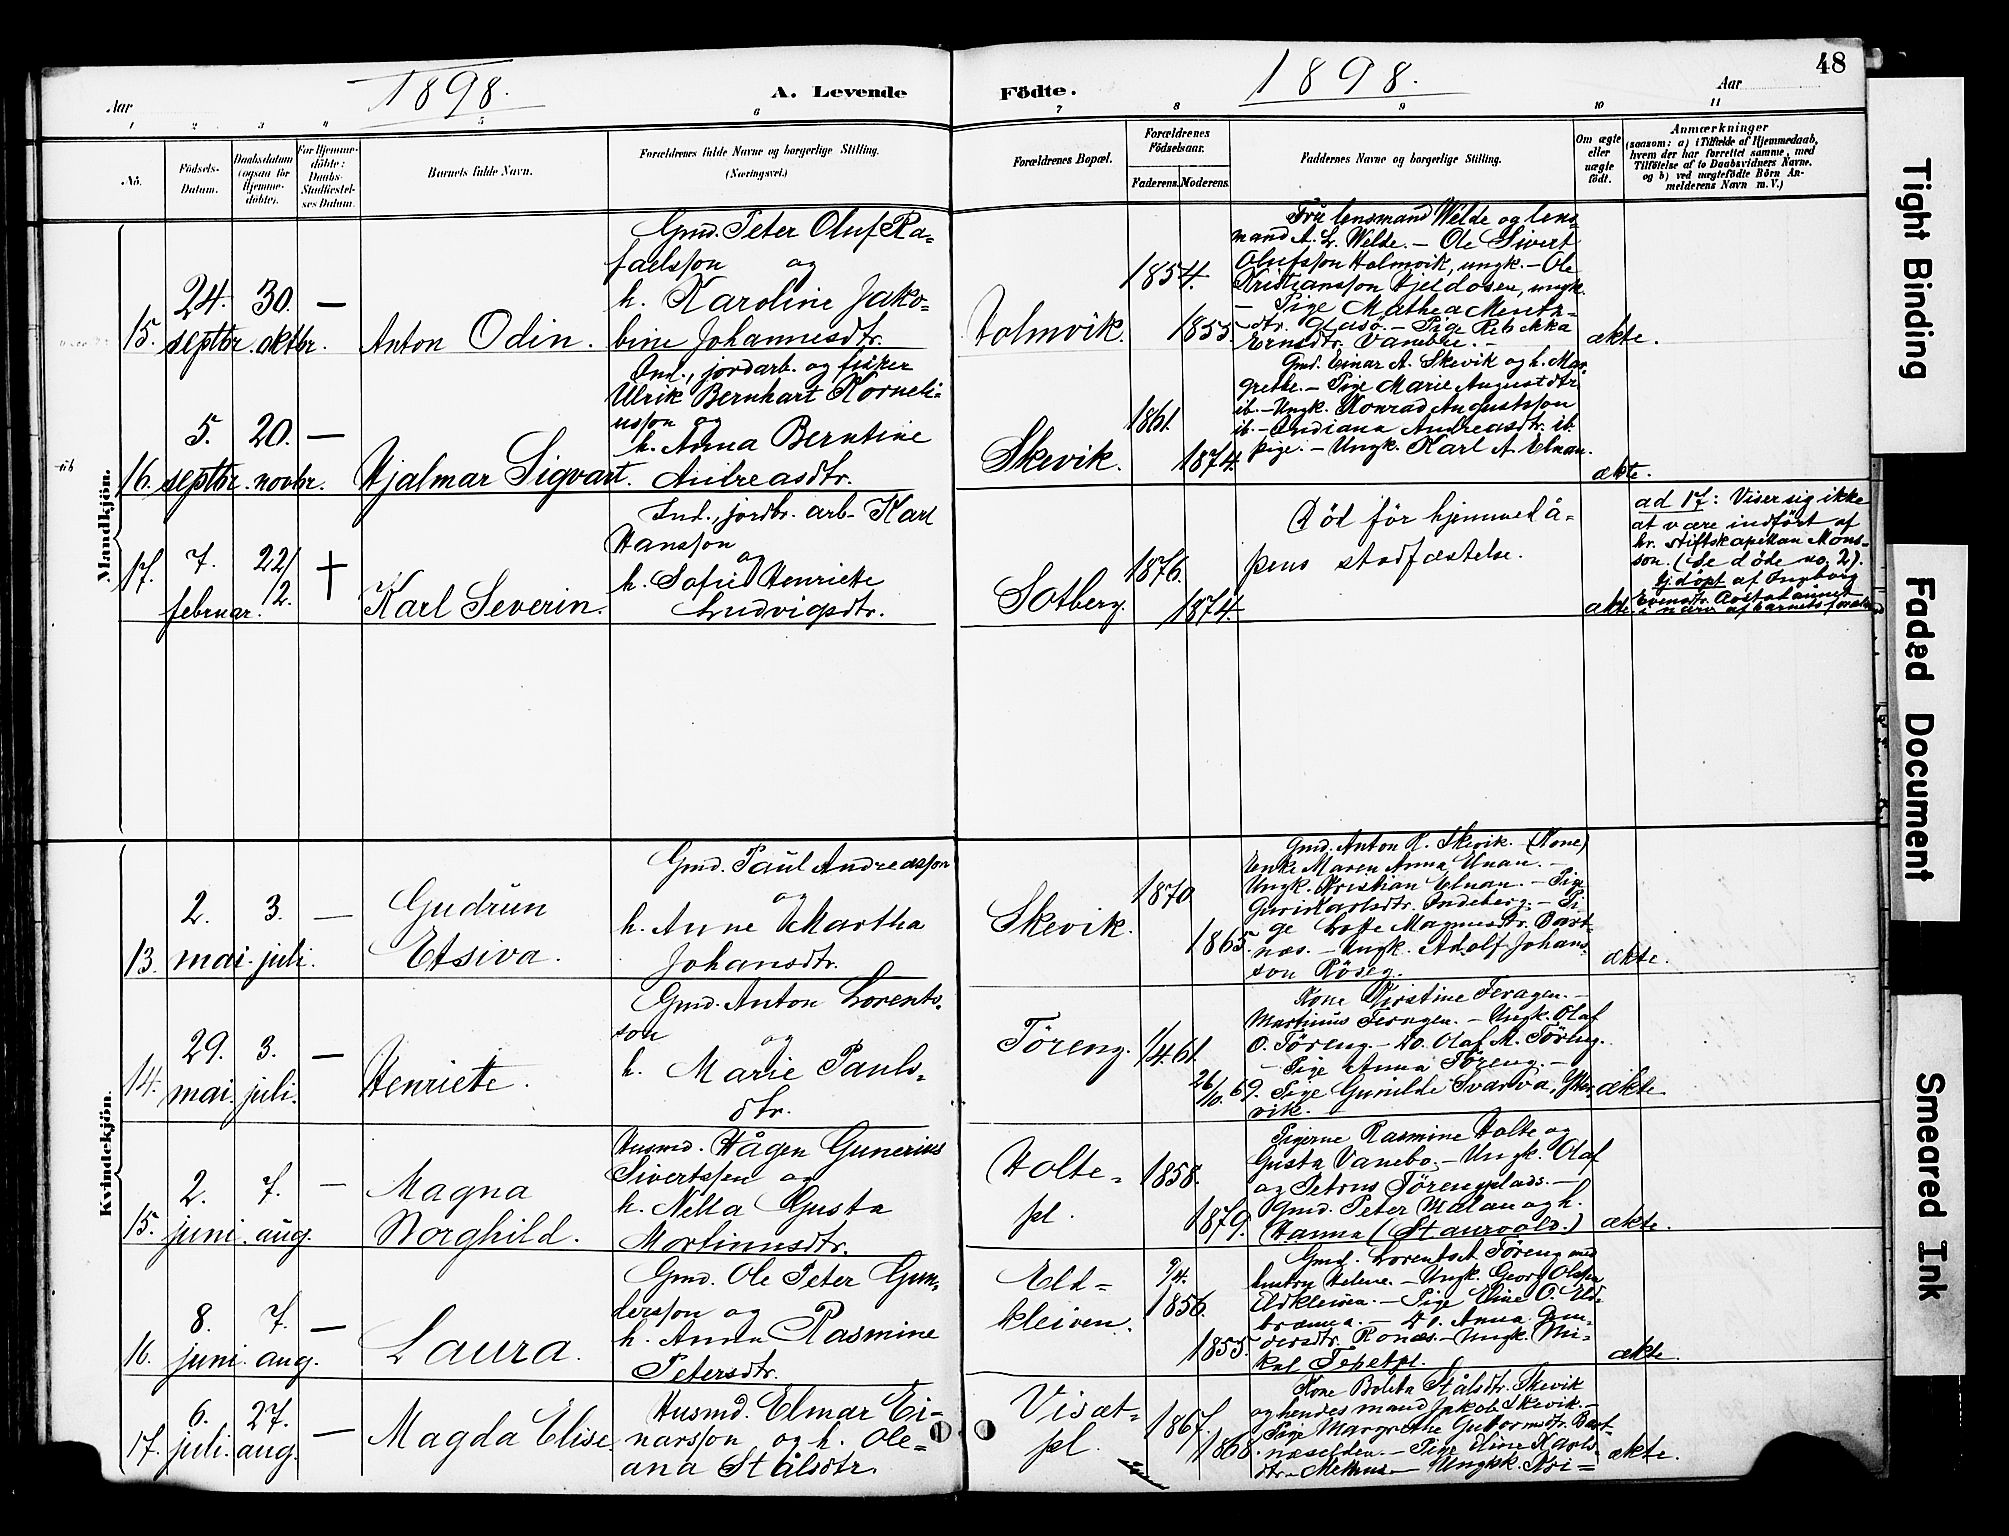 48
Aar 1898. A. Levende
Födte. 1898. Aar
1 2 3 4 5 6
7 8 9 10 11
No.
Födsels-
Datum.
Daabsdatum
(ogsaa for
Hjemme-
döbte).
For Hjemme-
döbte:
Daabs-
Stadfæstel-
ses Datum.
Barnets fulde Navn.
Forældrenes fulde Navne og borgerlige Stilling.
(Næringsvei.)
Forældrenes Bopæl.
Forældrenes
Födselsaar.
Faderens. Moderens.
Faddernes Navne og borgerlige Stilling.
Om ægte
eller
uægte
født.
Anmærkninger
(saasom: a) i Tilfælde af Hjemmedaab,
hvem der har forrettet samme, med
Tilföielse af to Daabsvidners Navne.
og b) ved uægtefödte Börn An-
melderens Navn m. V.)
Mandkjön.
15.
24.
septbr.
30.
oktbr.
—
Anton Odin.
Gmd. Peter Oluf Ra-
faelsson og
h. Karoline Jako-
bine Johannesdtr.
Holmvik.
1854.
1855
Fru lensmand Welde og lens-
mand A. L. Welde. — Ole Sivert
Olufsson Holmvik, ungk. — Ole
Kristiansson Hjeldosen, ungk.
— Pige Mathea Mentz-
dtr. Glasö. — Pige Rebekka
ægte.
16.
5.
septbr.
20.
novbr.
—
Hjalmar Sigvart.
Ind., jordarb. og fisker
Ulrik Bernhart Korneli-
usson og
h. Anna Berntine
Andreasdtr.
Skevik.
1861.
1874.
Gmd. Einar A. Skevik og h. Mar-
grethe. — Pige Marie Augustdtr.
ib. — Ungk. Konrad Augustsson
ib. — Indiana Andreasdtr. ib.
pige. — Ungk. Karl A. Elnan.
ægte.
17.
7.
februar.
22/
12.
†
Karl Severin.
Ind., jordbr. arb. Karl
Hansson
og
h. Sofie Henriette
Ludvigsdtr.
Solberg.
1876.
1874.
Död för hjemmedå-
pens stadfæstelse.
ægte.
ad 17: Viser sig ikke
at være indfört af
hr. stiftskapellan Mons-
son. (Se döde no 2).
Hj. döpt af Ingeborg
i nærv. af barnets foræld
Kvindekjön.
13.
2.
mai.
3.
juli.
—
Gudrun
Etsiva.
Gmd. Paul Andreasson
og
h. Anne Martha
Johansdtr.
Skevik.
1870
1865.
Gmd. Anton R. Skevik. (Kone)
Enke Maren Anna Elnan. —
Ungk. Kristian Elnan. — Pige
Guri Karlsdtr. Indeberg. — Pi-
ge Lotte Magnusdtr. Bart-
nes. — Ungk. Adolf Johans-
son Röseg.
ægte.
14.
29.
mai.
3.
juli.
—
Henriete.
Gmd. Anton Lorents-
son
og
h. Marie Pauls-
dtr.
Töreng.
1/4.61.
26/10.69.
Kone Kirstine Feragen. —
Martinus Feragen. — Ungk. Olaf
O. Töreng. — do. Olaf M. Töreng.
— Pige Anna Töreng. —
Pige Gunilde Svarva, Ytter-
vik.
ægte.
15.
2.
juni.
7.
aug.
—
Magna
Borghild.
Husmd. Hågen Gunerius
Sivertssen og
h. Nella Gusta
Mortinusdtr.
Holte-
pl.
1858.
1879.
Pigerne Rasmine Holte og
Gusta Vanebo. — Ungk. Olaf
og Petrus Törengplads. —
Gmd. Peter Malan og h.
Hanna (Staurvold.)
ægte.
16.
8.
juni.
7.
aug.
—
Laura.
Gmd. Ole Peter Gun-
dersson og
h. Anna Rasmine
Petersdtr.
Eld-
kleiven.
9/4.
1856.
1855.
Gmd. Lorentset Töreng med
hustru Helene. — Ungk. Georg Olssön
Eldkleiven. — Pige Eline O. Eld-
brænna. — do. Anna Gun-
dersdtr. Ronæs. — Ungk. Mi-
kal
ægte.
17.
6.
juli.
27.
aug.
—
Magda Elise
Husmd. Elmar Ei-
narsson og h. Ole-
ana Stålsdtr.
Visæt-
pl.
1867.
1868.
Kone Boletta Stålsdtr. Skevik
og hendes mand Jakob Skevik. —
Pige Margrethe Guttormsdtr. Bart-
næselden. — Pige Eline Karls-
dtr. — Ungkk. Kri-
ægte.
Tight Binding
Faded Document
Smeared Ink